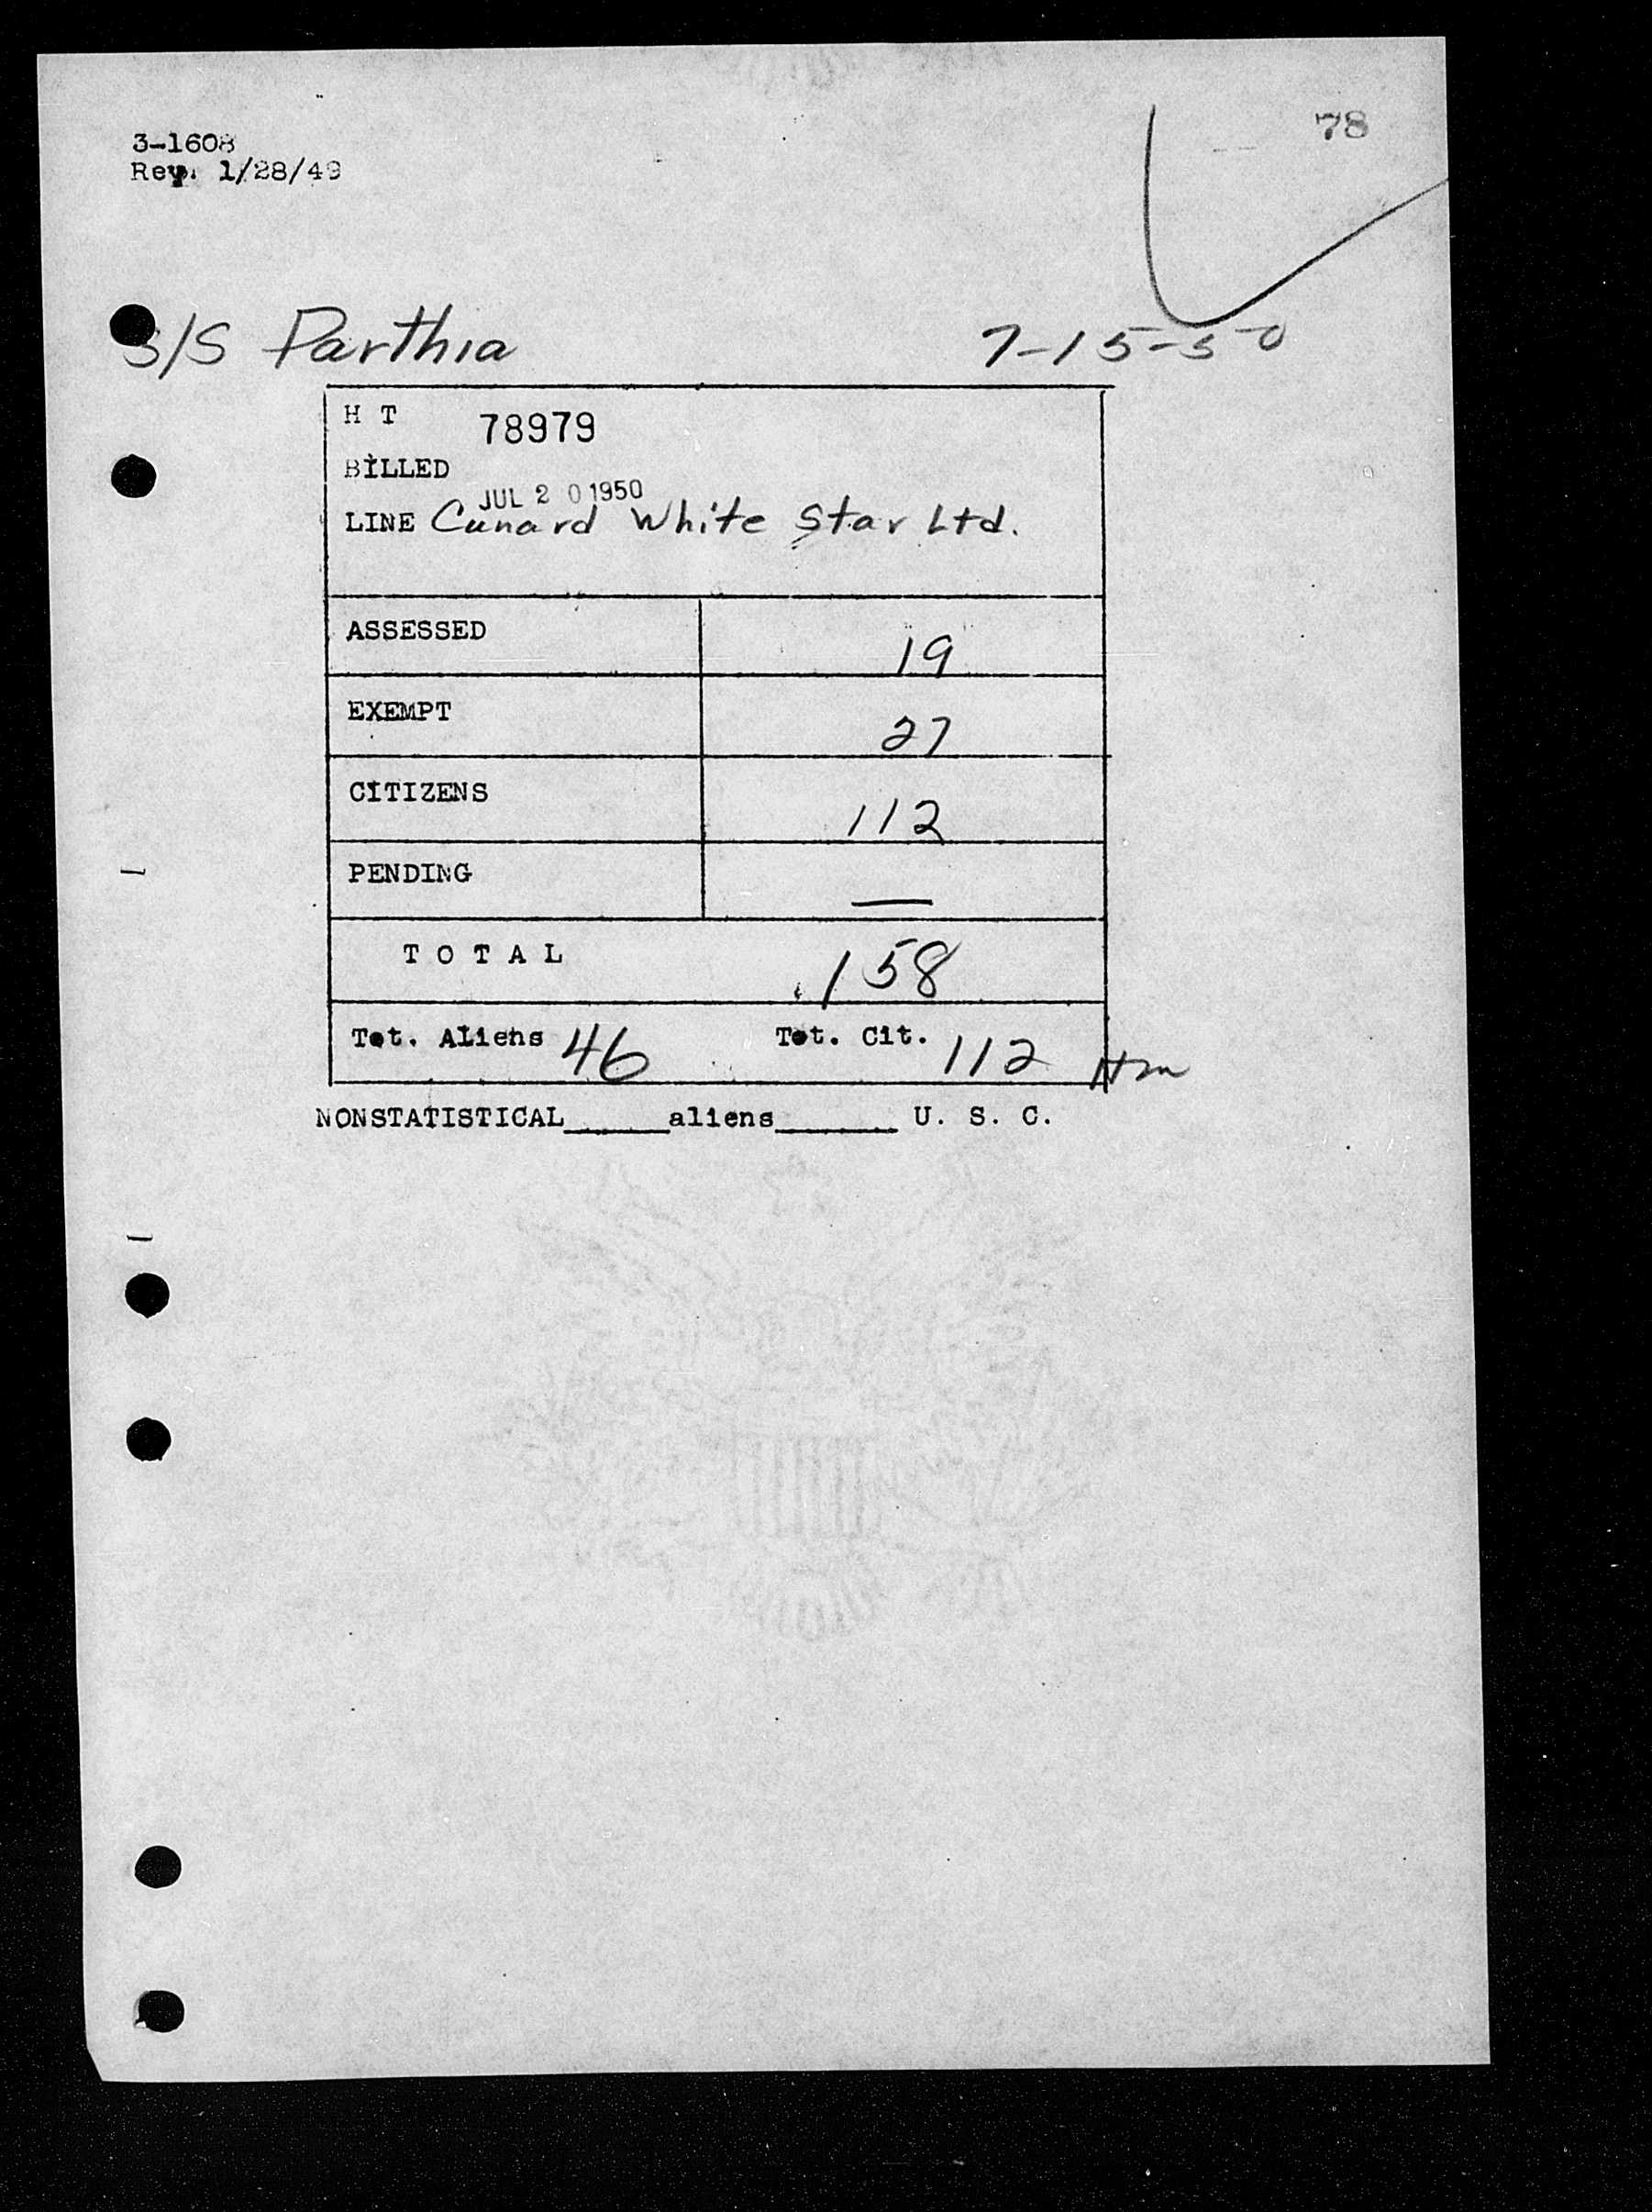 78
3-1608
Rev. 1/28/49
S/S Parthia 7-15-50
H T 78979
BILLED
JUL 20 1950
LINE Cunard White Star Ltd.
ASSESSED 19
EXEMPT 27
CITIZENS 112
PENDING —
TOTAL 158
Tot. Aliens 46 Tot. Cit. 112
NONSTATISTICAL_____aliens______ U. S. C.